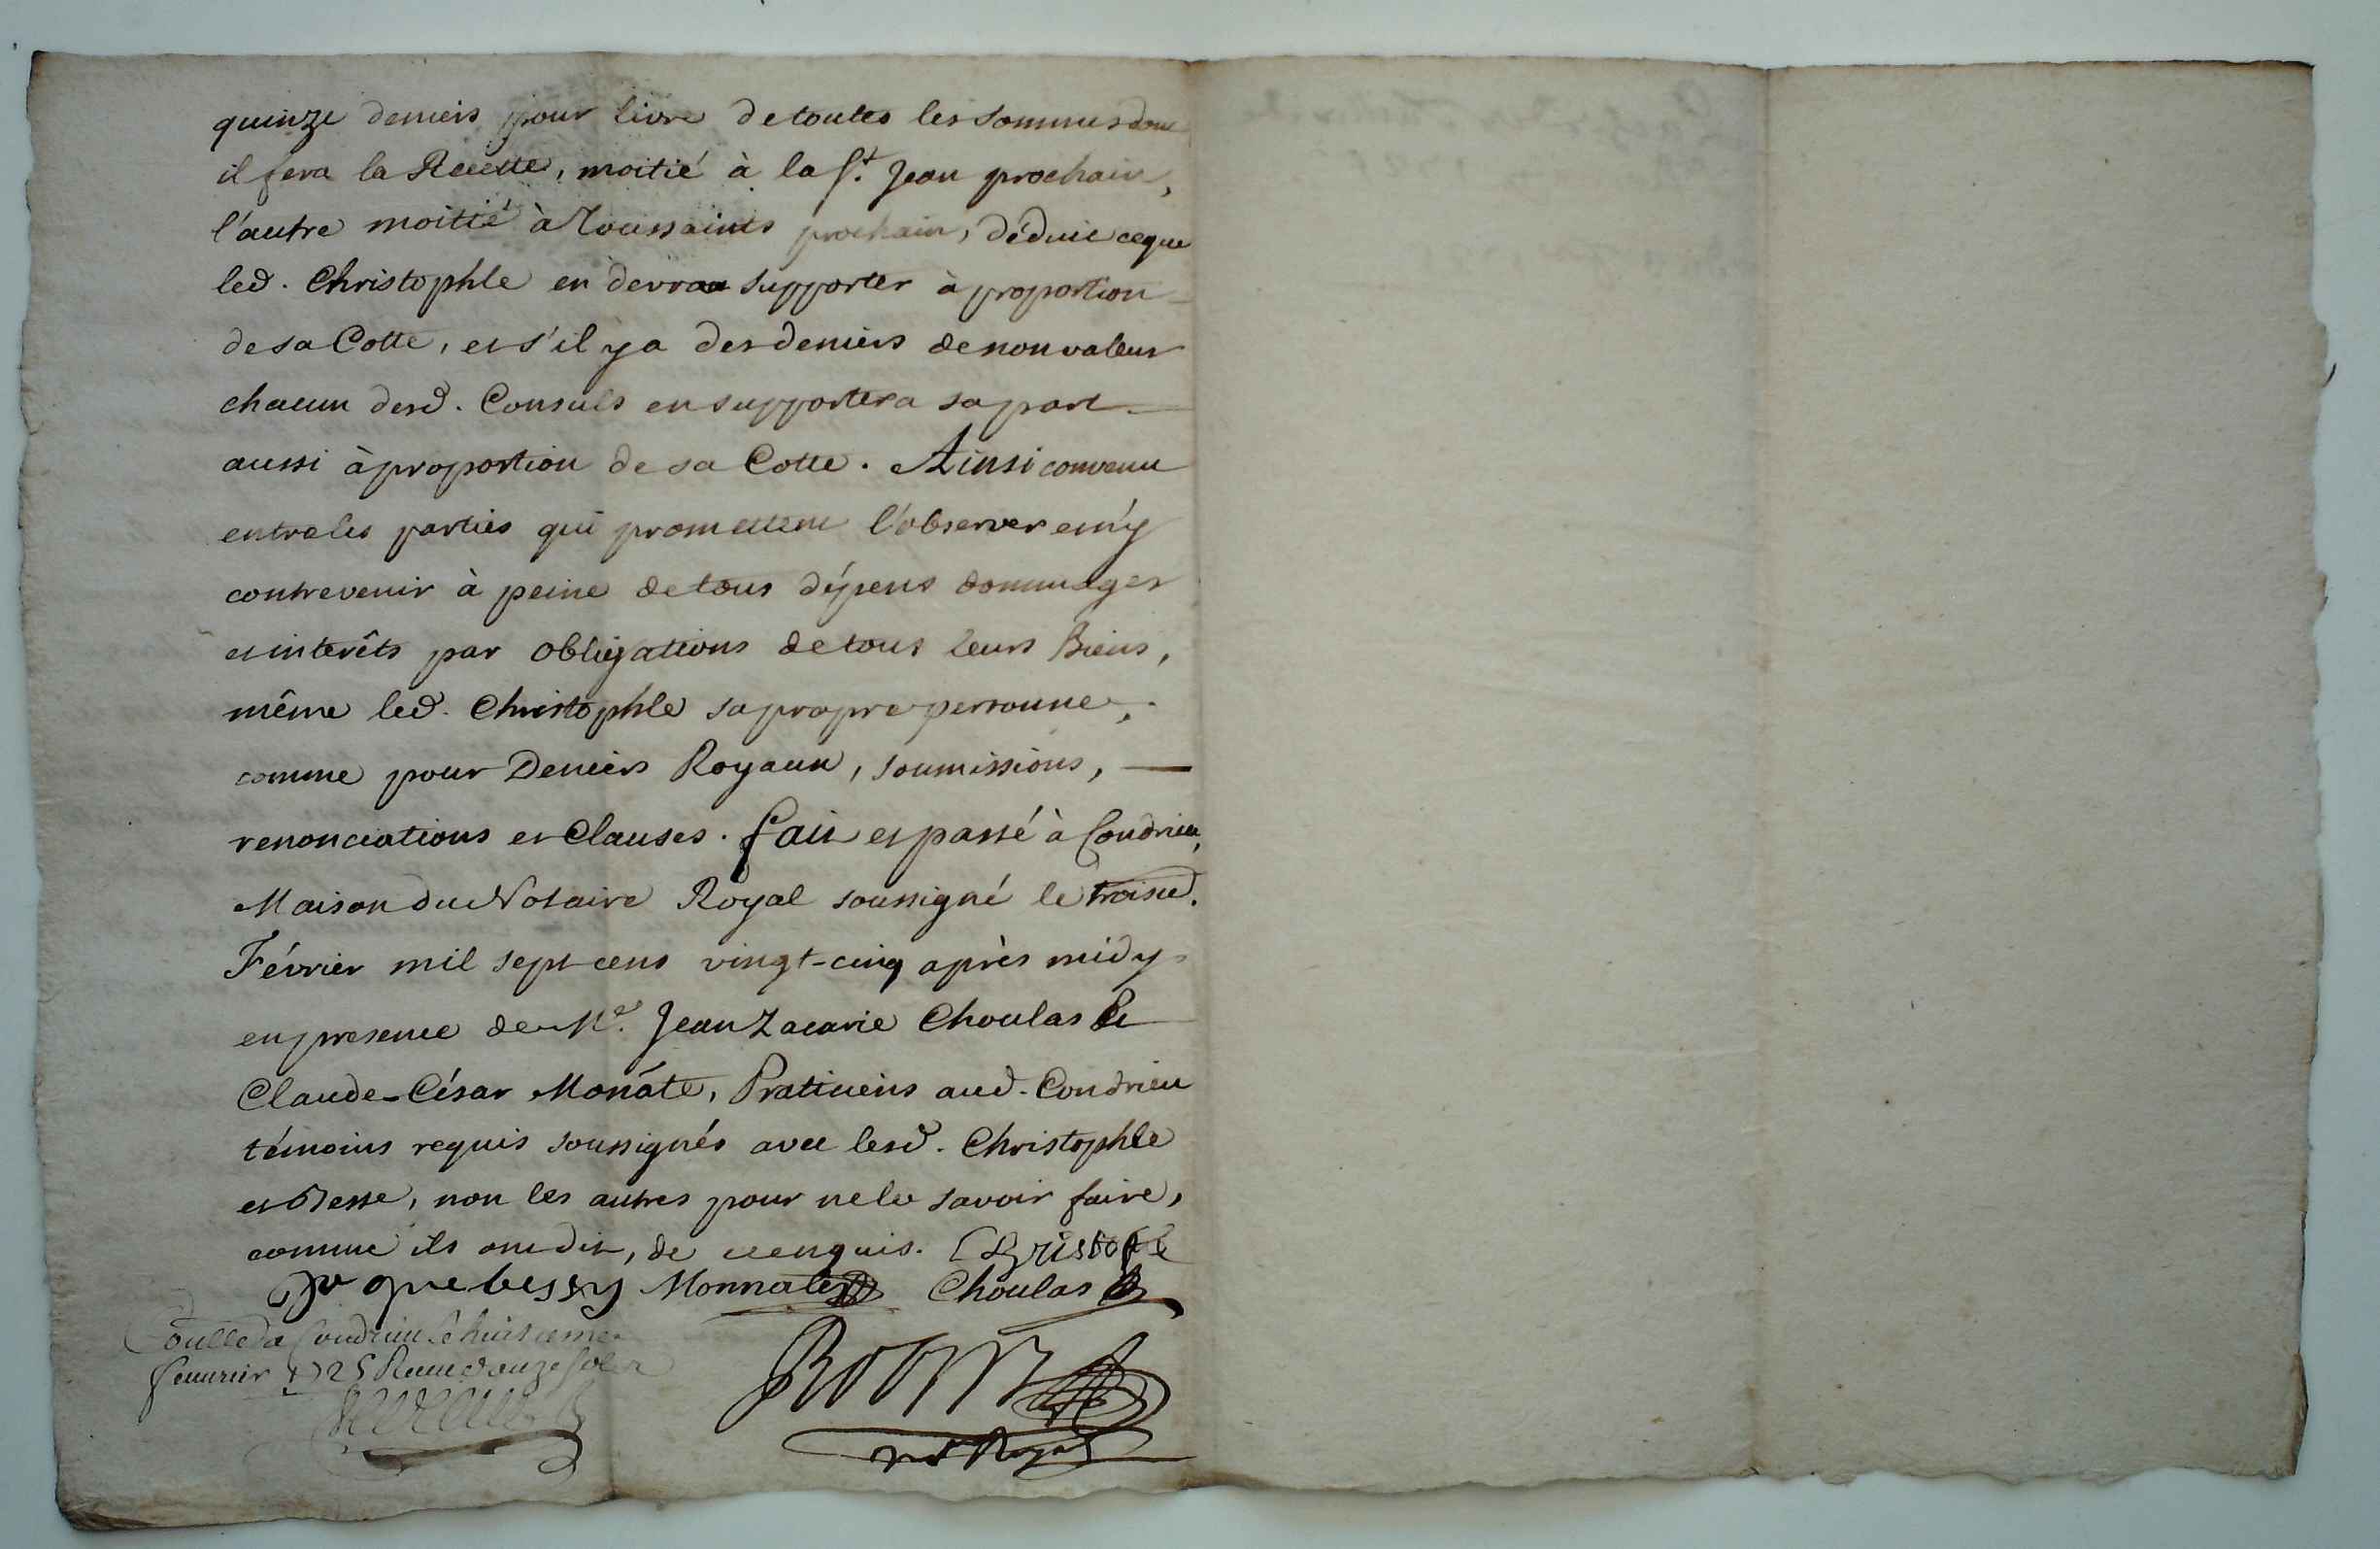 quinze deniers pour livre de toutes les sommes dont
il fera la Recette, moitié à la St. Jean prochain,
l'autre moitié à Toussaints prochain, déduit ce que
led. Christophle en devra supporter à proportion
de sa Cotte, et s'il y a des deniers de non valeur
chacun desd. Consuls en supportera sa part
aussi à proportion de sa Cotte. Ainsi convenu
entre les parties qui promettent l'observer et n'y
contrevenir à peine de tous dépens dommages
et interêts par obligations de tous leurs Biens,
même led. Christophle sa propre personne,
comme pour Deniers Royaux, soumissions,
renonciations et Clauses. fait et passé à Condrieu,
Maison du Notaire Royal soussigné le troisie.
Février mil sept cens vingt-cinq après midy
en presence de Me. Jean Zacarie Choulas Et
Claude-César Monâte, Praticiens aud. Condrieu
témoins requis soussignés avec lesd. Christophle
et Besse, non les autres pour ne le savoir faire,
comme ils ont dit, de ce enquis. Christofle
bessy Monnate Choulas
Coullé à Condrieu le huitieme
feuurier 1725 Receu douze sols
n.re Royal